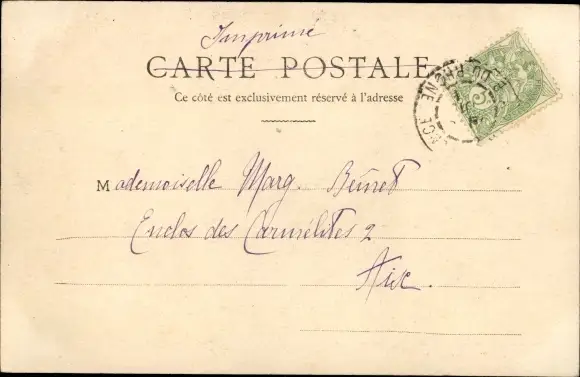 Imprimé
CARTE POSTALE
Ce côté est exclusivement réservé à l'adresse
Mademoiselle Marg.
Enclos des Carmélites 2
Aix.
DU RHONE